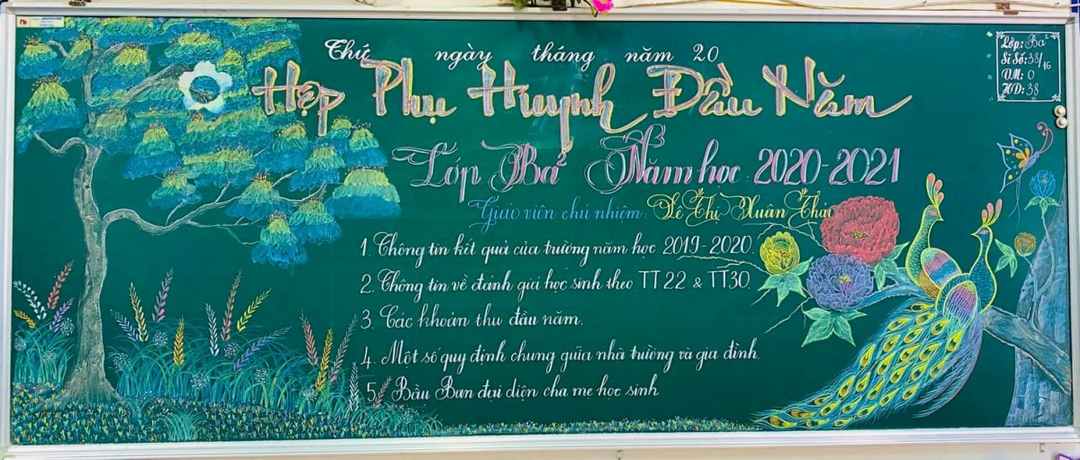 Thứ ngày tháng năm 20
Họp Phụ Huynh Đầu Năm
Lớp Ba² Năm học 2020-2021
Giáo viên chủ nhiệm: Lê Thị Xuân Thái
1. Thông tin kết quả của trường năm học 2019-2020.
2. Thông tin về đánh giá học sinh theo TT22 & TT30.
3. Các khoản thu đầu năm.
4. Một số quy định chung giữa nhà trường và gia đình.
5. Bầu Ban đại diện cha mẹ học sinh
Lớp: Ba²
Sĩ Số: 38/16
VM: 0
HD: 38